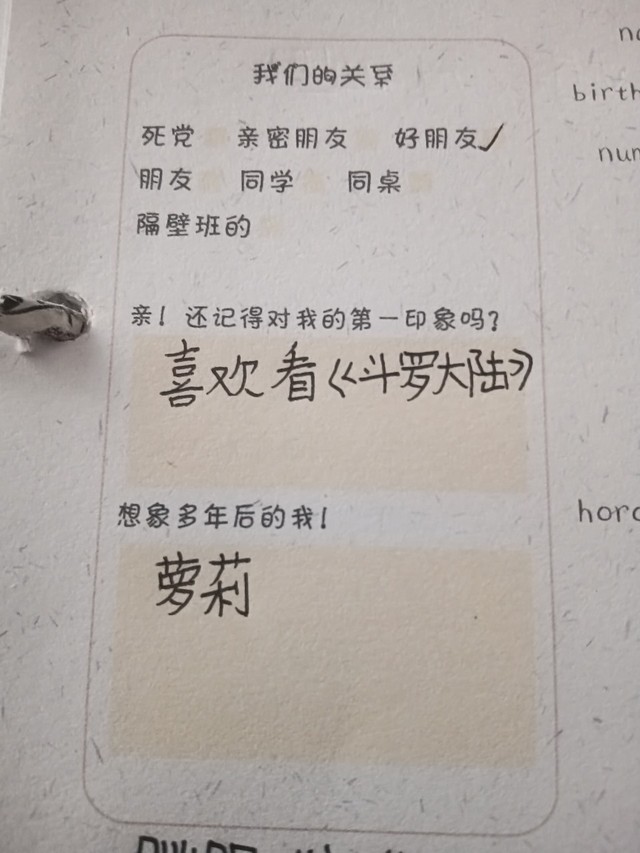 我们的关系
死党 亲密朋友 好朋友✓
朋友 同学 同桌
隔壁班的
亲！还记得对我的第一印象吗？
喜欢看《斗罗大陆》
想象多年后的我！
萝莉
birth